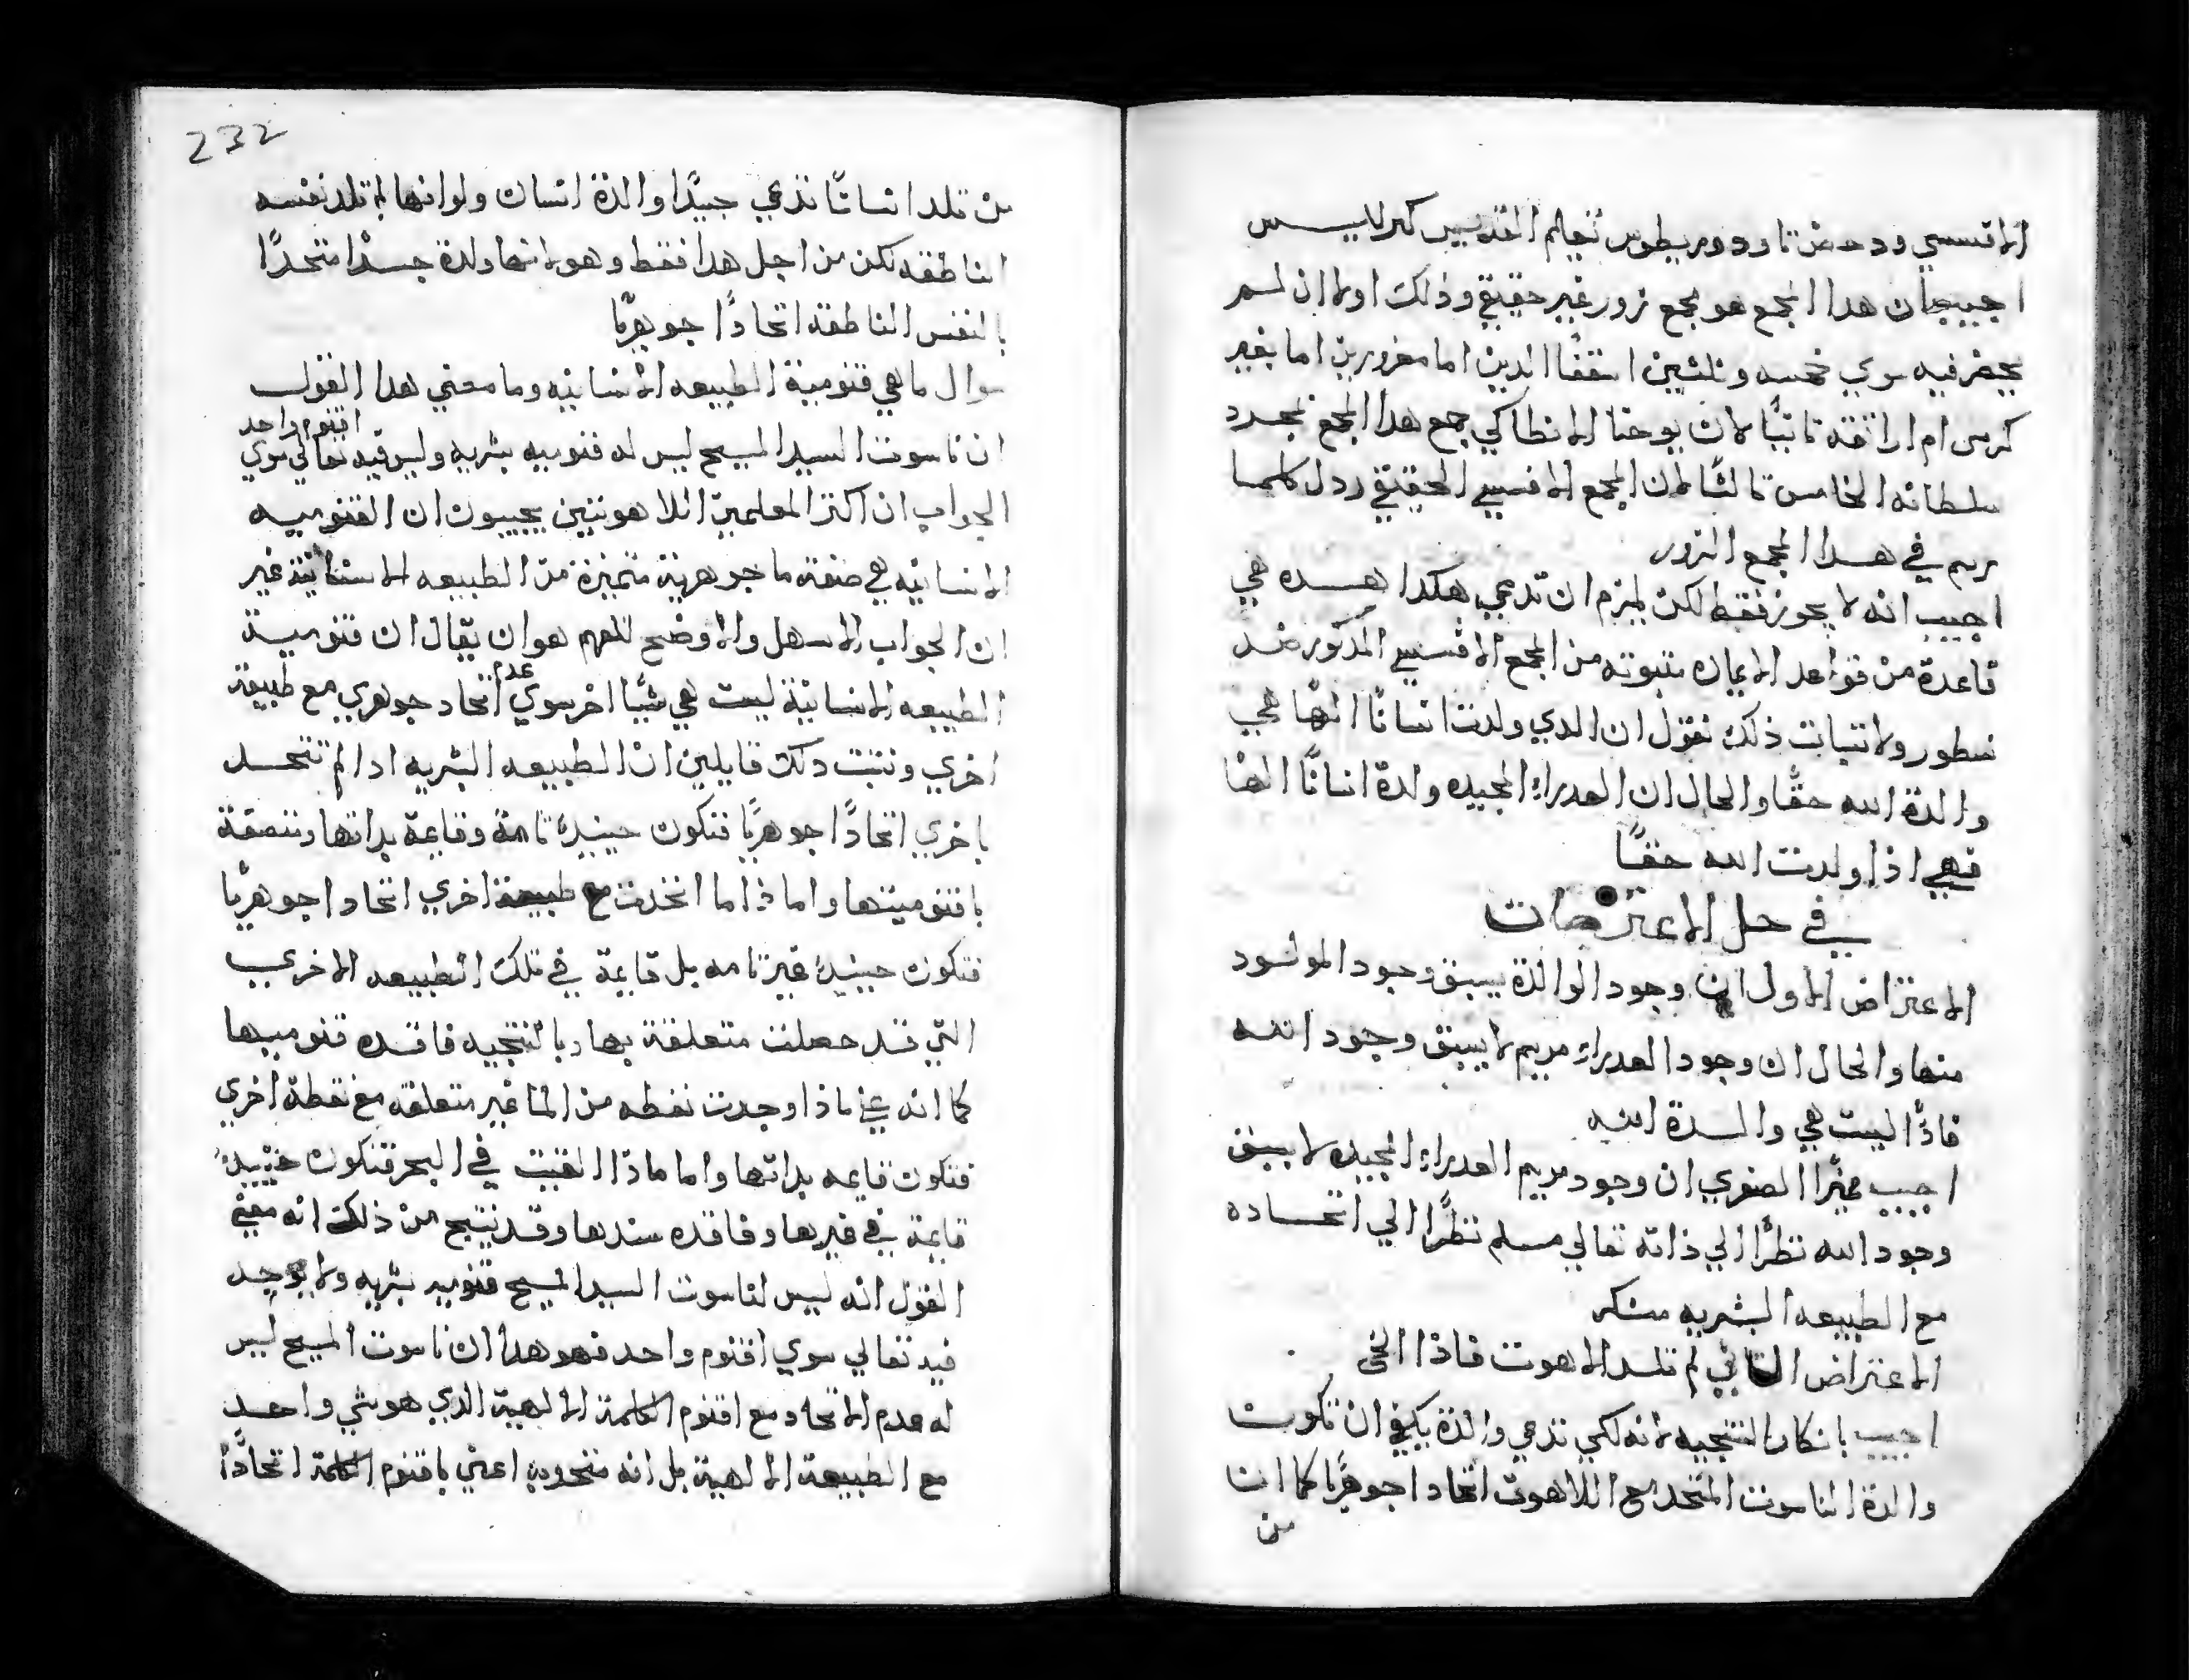 الافسسي ودحض تاودوريطوس تعاليم القديس كيرلليس
اجيب ان هدا المجمع هو مجمع مزور غير حقيقي وذلك اولا ان لم
يحضر فيه سوي خمسه وثلثين اسقفًا الدين اما مغرورين اما بغير
كرسي ام اراتقه ثانيًا لان يوحنا الانطاكي جمع هدا المجمع بمجرد
سلطانه الخاص ثالثًا لان المجمع الافسسي الحقيقي ردل كلما
رسم في هدا المجمع المزور
اجيب انه لا يجوز فقط لكن يلزم ان تدعي هكدا هده هي
قاعدة من قواعد الايمان مثبوته من المجمع الافسسي المدكور ضد
نسطور ولاتبات ذلك نقول ان الدي ولدت انسانًا الهًا هي
والدة الله حقًا والحال ان العدراء المجيده والدة انسانًا الهًا
فهي اذا ولدت الله حقًا
في حل الاعتراضات
الاعتراض الاول ان وجود الوالدة يسبق وجود المولود
منها والحال ان وجود العدراء مريم لا يسبق وجود الله
فاذًا ليست هي والدة الله
اجيب مميزًا الصغري ان وجود مريم العدراء المجيده لا يسبق
وجود الله نظرًا الي ذاته تعالي مسلم نظرًا الي اتحاده
مع الطبيعه البشريه منكر
الاعتراض التاني لم تلد الاهوت فاذا الخ
اجيب بانكار النتيجيه لانه لكي تدعي والدة يكفي ان تكون
والدة الناسوت المتحد مع اللاهوت اتحادا جوهريًا كما ان
من
232
من تلد انسانًا تدعي جيدًا والدة انسان ولو انها لم تلد نفسه
الناطقه لكن من اجل هدا فقط وهو لانها ولدة جسدًا متحدًا
بالنفس الناطقة اتحادًا جوهريًا
سوال ما هي قنومية الطبيعه الانسانيه وما معني هدا القول
ان ناسوت السيد المسيح ليس له قنوميه بشريه وليس فيه تعالي سوي اقنوم واحد
الجواب ان اكثر المعلمين اللاهوتيين يجيبون ان القنوميه
الانسانيه هي صفة ما جوهرية متميزة من الطبيعه الانسانية غير
ان الجواب الاسهل والاوضح للفهم هو ان يقال ان قنومية
الطبيعه الانسانية ليست هي شيًا اخر سوي عدم اتحاد جوهري مع طبيعة
اخري ونتبت دلك قايلين ان الطبيعه البشريه ادا لم تتحد
باخري اتحادًا جوهريًا فتكون حينيدٍ تامة وقايمة بداتها ومتصفة
باقنوميتها واما ذا ما اتخدت مع طبيعة اخري اتحادا جوهريًا
فتكون حينيدٍ غير تامه بل قايمة في تلك الطبيعه الاخري
التي قد جعلت متعلقة بها وبالنتيجيه فاقده قنوميها
كما انه يعني اذا وجدت نقطه من الما غير متعلقه مع نقطة اخري
فتكون قايمه بداتها واما ماذا القيت في البحر فتكون حينيدٍ
قايمة في غيرها وفاقده سندها وقد نتيج من ذلك انه معني
القول انه ليس لناسوت السيد المسيح قنوميه بشريه ولا يوجد
فيه تعالي سوي اقنوم واحد فهو هدا ان ناسوت المسيح ليس
له عدم الاتحاد مع اقنوم الكلمة الالهية الدي هو شي واحد
مع الطبيعة الالهية بل انه متحد به اعني باقنوم الكلمة اتحادًا